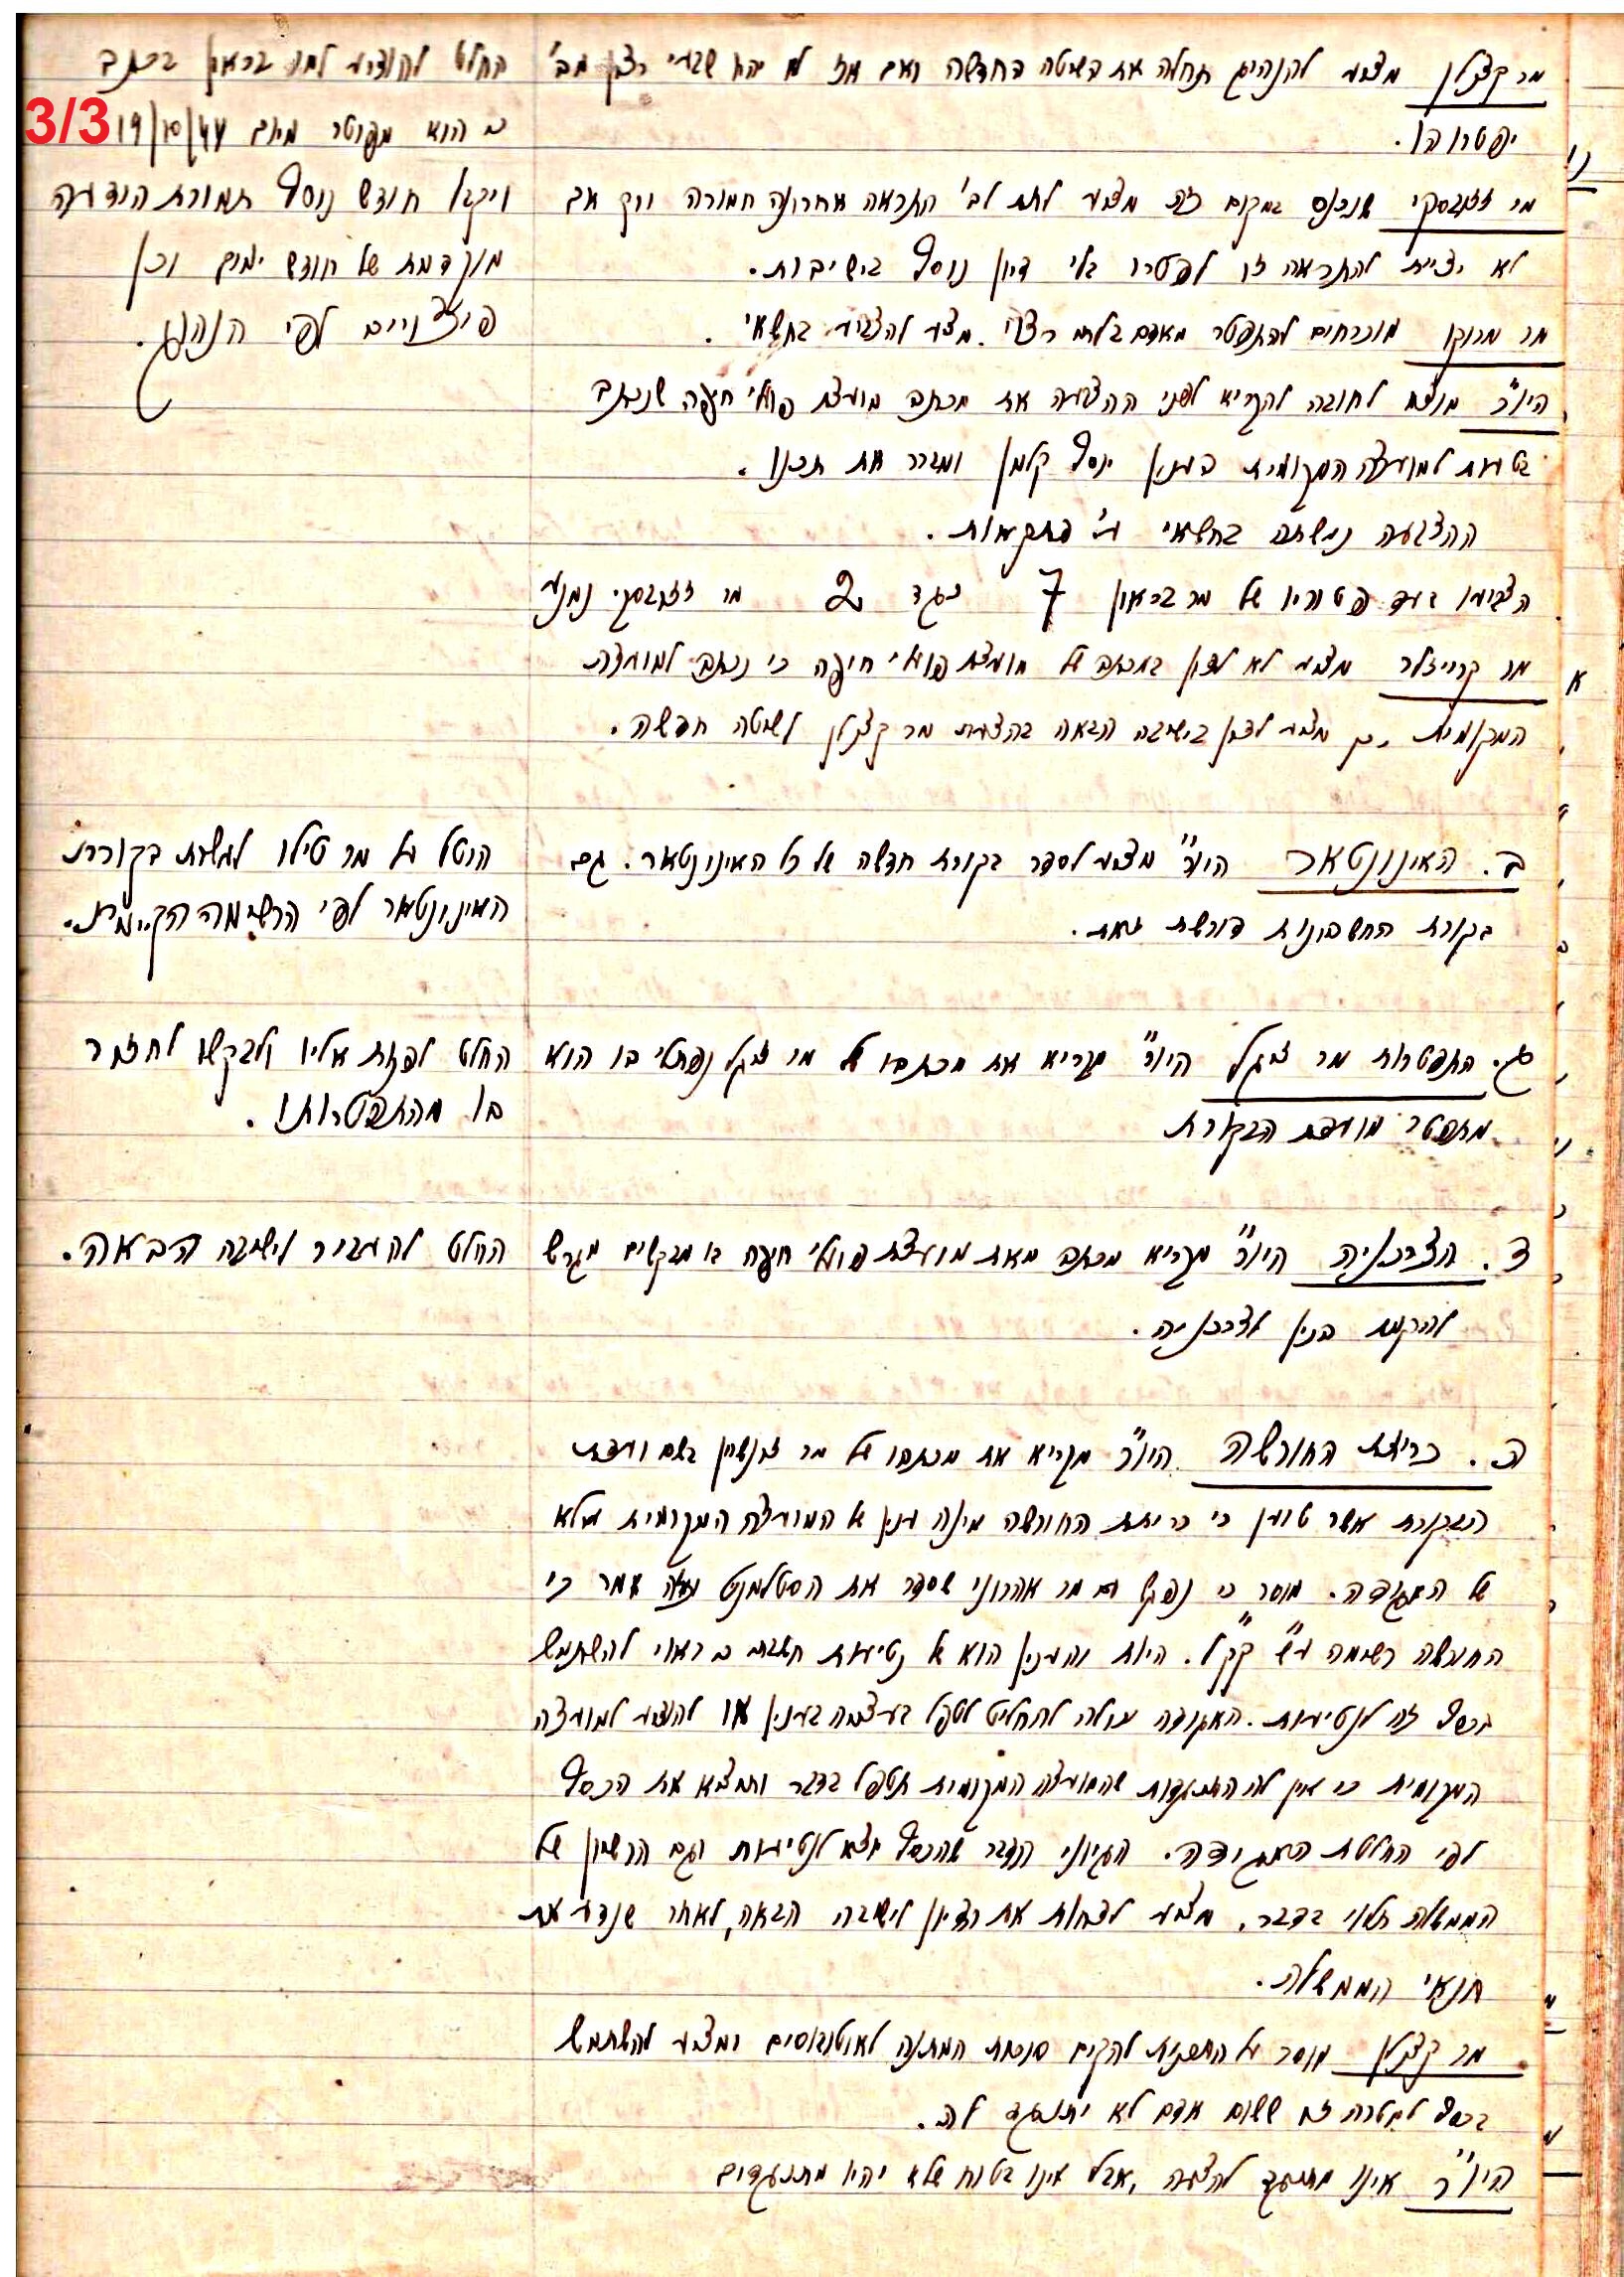 מר קצנלסון מציע להנהיג תחלה את השיטה החדשה ואם אז לא יהיו שבעי רצון מב'
יפטרוהו.
מר שנכנס במקום זה מציע לתת לב' התראה אחרונה חמורה ורק אם
לא יציית להתראה זו לפטרו בלי דיון נוסף בישיבות.
מר מרוקו מוכרחים להתפטר מאדם בלתי רצוי. מציע להצביע בחשאי.
היו"ר מוצא לחובה להקריא לפני ההצבעה את מכתב מועצת פועלי חיפה שנכתב
בטעות למועצה המקומית בענין יוסף קלמן ומברר את תכנו.
ההצבעה נעשתה בחשאי ע"י פתקאות.
הצביעו בעד פטוריו של מר בראון 7 נגד 2 מר נמנע
מר קרייזלר מציע לא לדון במכתב של מועצת פועלי חיפה כי נכתב למועצה
המקומית. כן מציע לדון בישיבה הבאה בהצעת מר קצנלסון לשיטה חדשה.
החלט להודיע למר בראון בכתב
3/3
כי הוא מפוטר מיום 19/10/44
ויקבל חודש נוסף תמורת הודעה
מוקדמת של חודש ימים וכן
פיצויים לפי הנהוג.
ב. האינוונטאר היו"ר מציע לסדר בקורת חדשה של כל האינוונטאר. גם
בקורת החשבונות דורשת זאת.
הוטל על מר טילו לעשות בקורת
האינוונטאר לפי הרשימה הקיימת.
ג. התפטרות מר זיגל היו"ר מקריא את מכתבו של מר זיגל נפתלי בו הוא
מתפטר מועדת הבקורת
החלט לפנות אליו ולבקשו לחזור
בו מהתפטרותו.
ד. הצרכניה היו"ר מקריא מכתב מאת מועצת פועלי חיפה בו מבקשים מגרש
להקמת בנין לצרכניה.
החלט להעביר לישיבה הבאה.
ה. כריתת החורשה היו"ר מקריא את מכתבו של מר בשם ועדת
הבקורת אשר טוען כי כריתת החורשה אינה ענין של המועצה המקומית אלא
של האגודה. מוסר כי נפגש עם מר אהרוני שסדר את הסטלמנט וזה אמר כי
החורשה רשומה ע"ש קק"ל. היות והענין הוא של נטיעות חושב כי ראוי להשתמש
בכסף זה לנטיעות. האגודה יכולה להחליט לטפל בעצמה בענין או להודיע למועצה
המקומית כי אין לה התנגדות שהמועצה המקומית תטפל בדבר ותמציא את הכסף
לפי החלטת האגודה. הגיוני הדבר שהכסף יוצא לנטיעות וגם הרשיון של
הממשלה תלוי בדבר. מציע לדחות את הדיון לישיבה הבאה, לאחר שנדע את
תנאי הממשלה.
מר קצנלסון מוסר על התכנית להקים סוכות המתנה לאוטובוסים ומציע להשתמש
בכסף למטרה זו ששום אדם לא יתנגד לה.
היו"ר אינו מתנגד להצעה, אבל אינו בטוח שלא יהיו מתנגדים